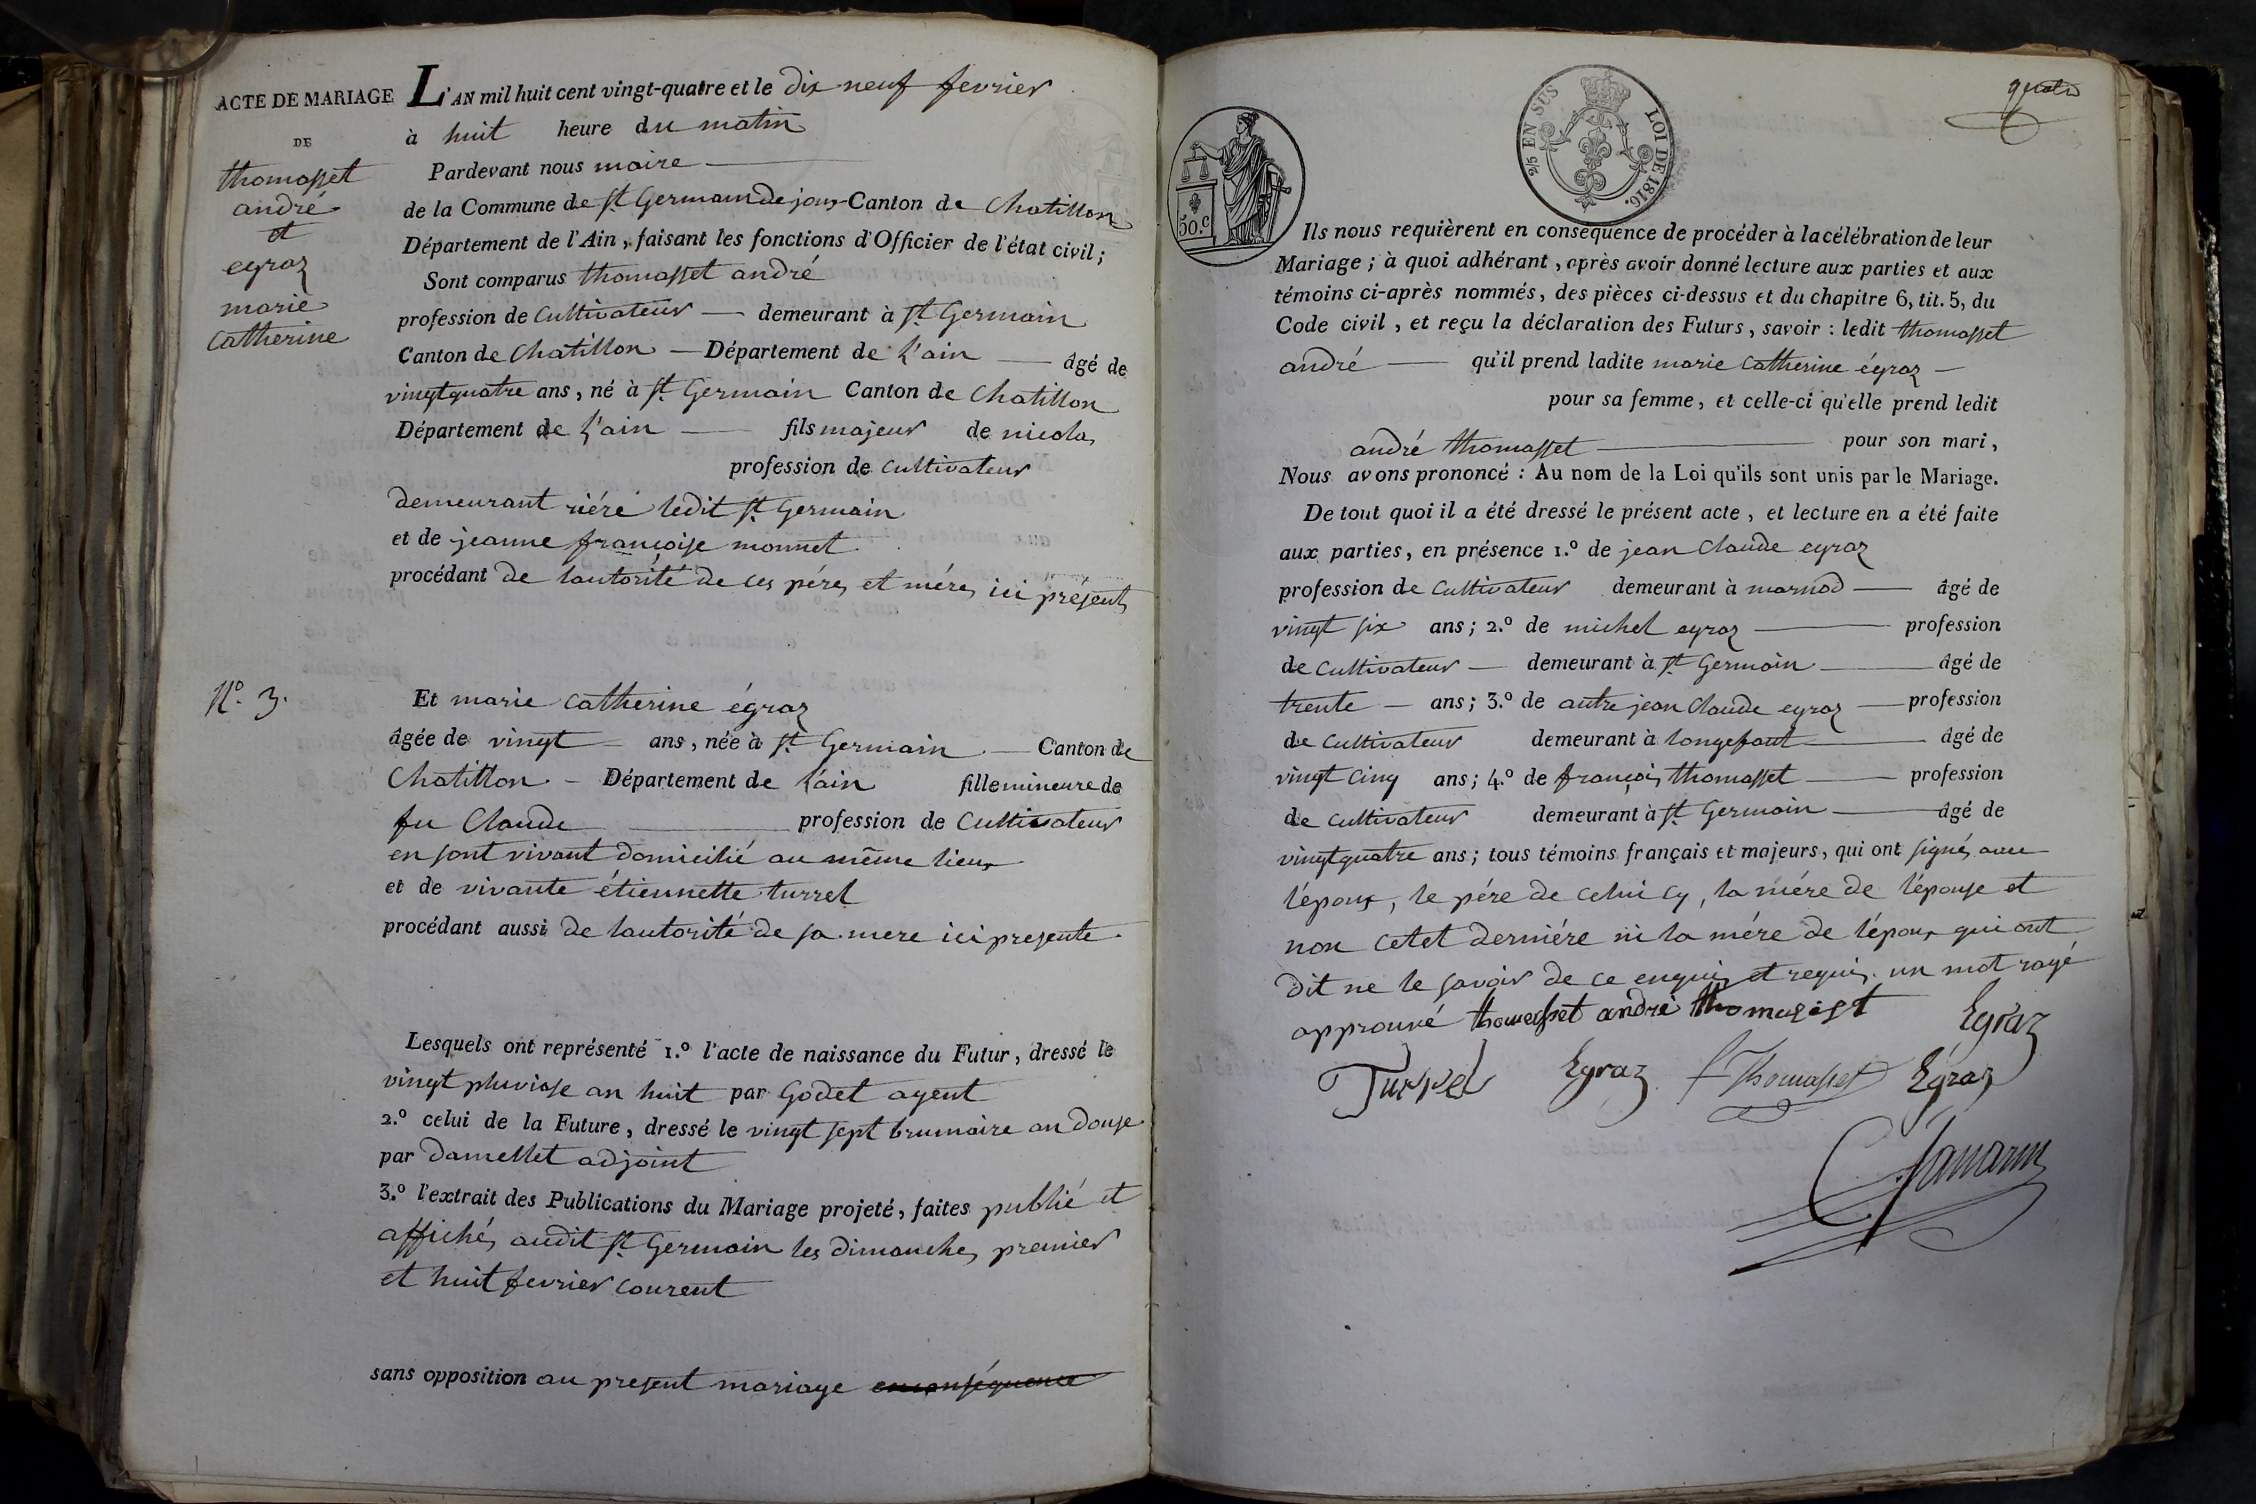 ACTE DE MARIAGE
DE
thomasset
andré
et
egraz
marie
catherine
L'AN mil huit cent vingt-quatre et le dix neuf fevrier
à huit heure du matin
Pardevant nous maire
de la Commune de St Germain de joux Canton de Chatillon
Département de l'Ain, faisant les fonctions d'Officier de l'état civil;
Sont comparus thomasset andré
profession de Cultivateur demeurant à St Germain
Canton de Chatillon Département de L'ain âgé de
vingtquatre ans, né à St Germain Canton de Chatillon
Département de L'ain fils majeur de nicolas
profession de Cultivateur
demeurant riére ledit St Germain
et de jeanne françoise monnet
procédant de lautorité de ces péres et méres ici présents
N.o 3.
Et marie catherine égraz
âgée de vingt ans, née à St Germain Canton de
Chatillon Département de L'ain fille mineure de
fu Claude profession de Cultivateur
en sont vivant domicilié au même lieux
et de vivante étiennette turrel
procédant aussi de lautorité de sa mere ici presente
Lesquels ont représenté 1.º l'acte de naissance du Futur, dressé le
vingt pluviose an huit par Godet agent
2.º celui de la Future, dressé le vingt sept brumaire an douse
par Damellet adjoint
3.º l'extrait des Publications du Mariage projeté, faites publié et
affichés audit St Germain les dimanches premier
et huit fevrier courent
sans opposition au present mariage enconséquence
quatre
50.C
2/5 EN SUS
LOI DE 1816.
Ils nous requièrent en conséquence de procéder à la célébration de leur
Mariage; à quoi adhérant, après avoir donné lecture aux parties et aux
témoins ci-après nommés, des pièces ci-dessus et du chapitre 6, tit. 5, du
Code civil, et reçu la déclaration des Futurs, savoir: ledit thomasset
andré qu'il prend ladite marie catherine égraz
pour sa femme, et celle-ci qu'elle prend ledit
andré thomasset pour son mari,
Nous avons prononcé: Au nom de la Loi qu'ils sont unis par le Mariage.
De tout quoi il a été dressé le présent acte, et lecture en a été faite
aux parties, en présence 1.º de jean Claude egraz
profession de Cultivateur demeurant à marnod âgé de
vingt six ans; 2.º de michel egraz profession
de Cultivateur demeurant à St Germain âgé de
trente ans; 3.º de autre jean Claude egraz profession
de Cultivateur demeurant à longefant âgé de
vingt cinq ans; 4.º de françois thomasset profession
de Cultivateur demeurant à St Germain âgé de
vingtquatre ans; tous témoins français et majeurs, qui ont signés avec
lépoux, le pére de celui cy, la mére de lépouse et
non cetet derniére ni la mére de lépoux qui ont
dit ne le savoir de ce enquis et requis. un mot rayé
approuvé thomasset andré thomasest Egraz
Turrel Egraz f Thomasset Égraz